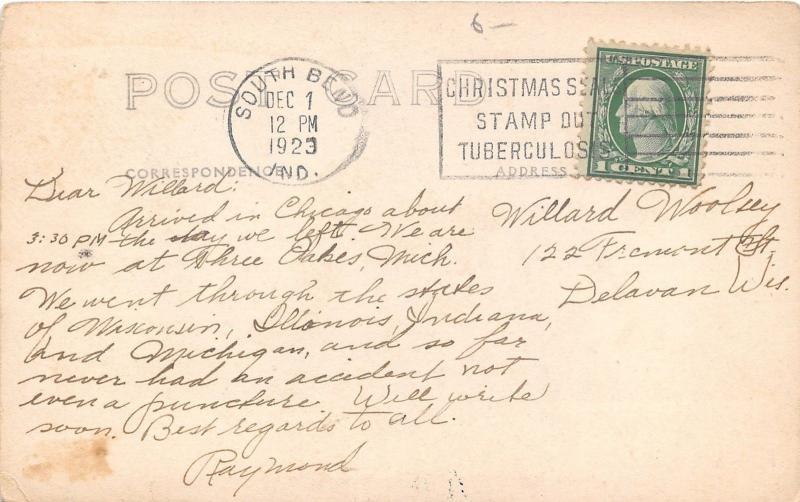 6-
POST CARD
SOUTH BEND
DEC 1
12 PM
1923
IND.
CHRISTMAS SEALS
STAMP OUT
TUBERCULOSIS
U.S. POSTAGE
1 CENT 1
CORRESPONDENCE
ADDRESS
Dear Willard:
Arrived in Chicago about
3:30 PM the day we left. We are
now at Three Oakes, Mich.
We went through the states
of Wisconsin, Illinois, Indiana,
and Michigan, and so far
never had an accident not
even a puncture. Will write
soon. Best regards to all.
Raymond
Willard Woolsey
122 Fremont St.
Delavan Wis.